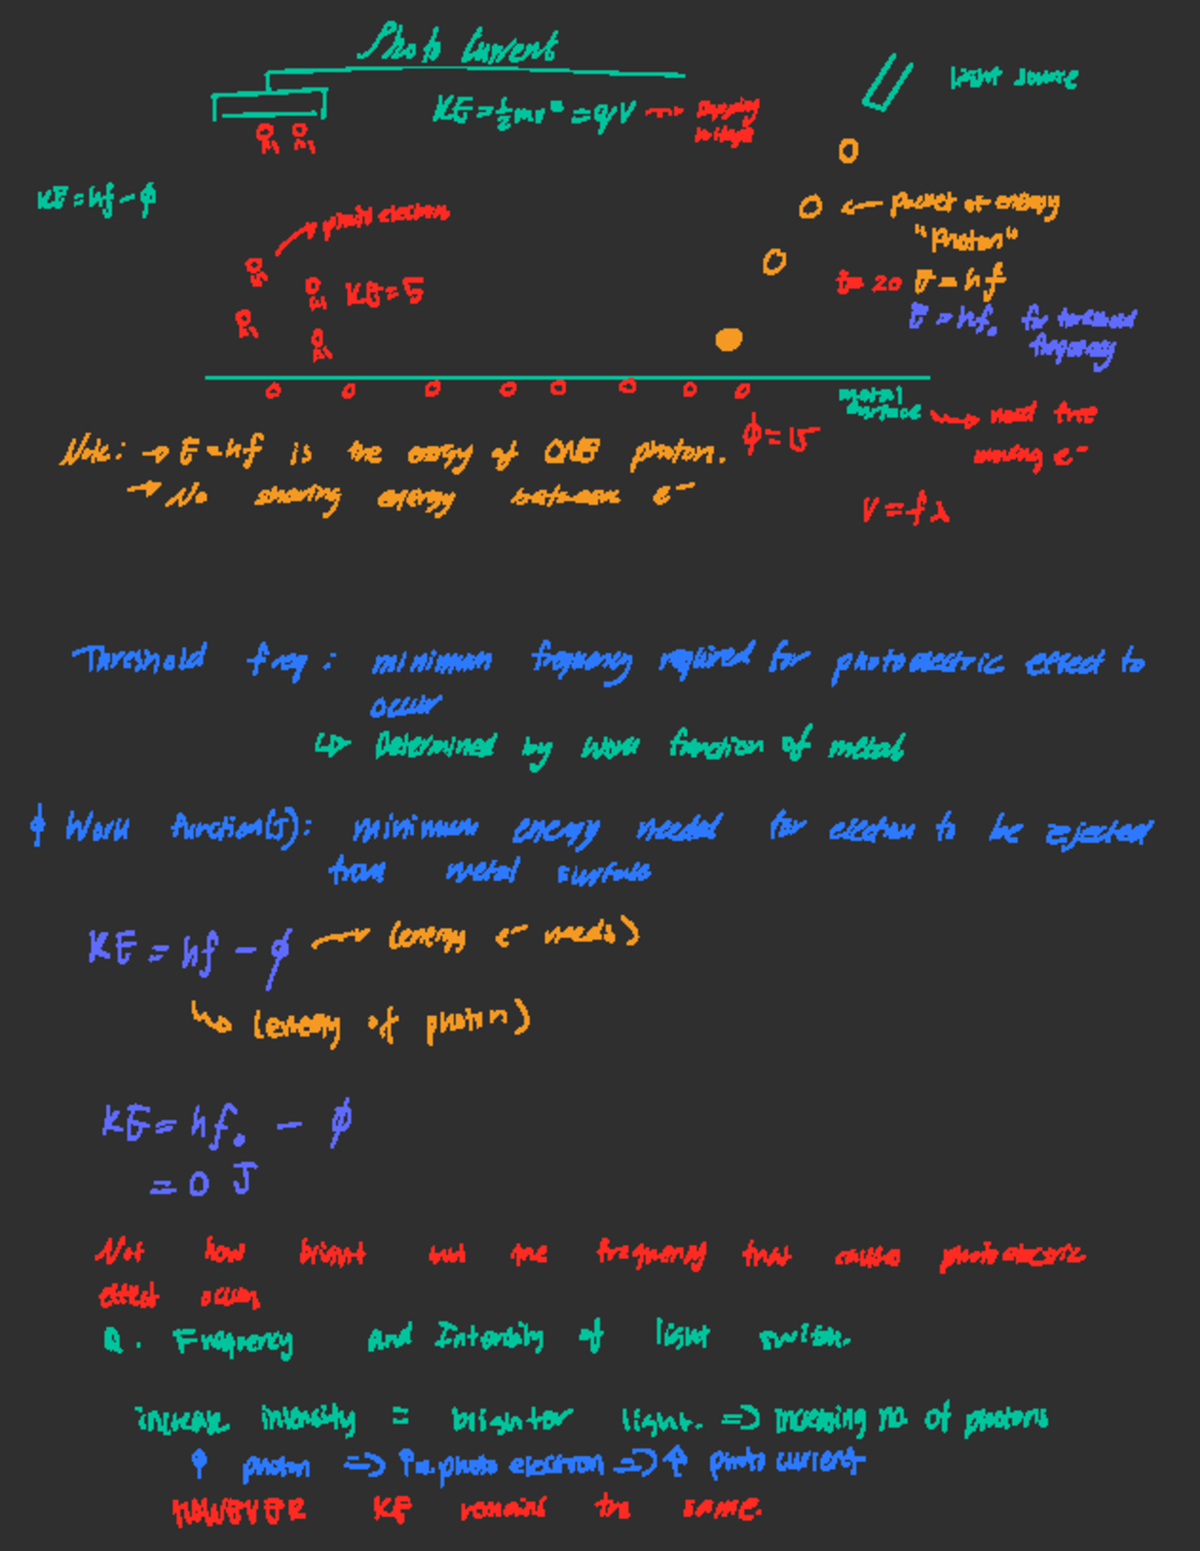 Photo Current
Light source
KE = ½mv² = qV → stopping voltage
KE = hf - ϕ
photo electron
← packet of energy
"Photon"
KE = 5
E = 20 E = hf
E = hf₀ for threshold
frequency
metal
surface → need free
moving e⁻
ϕ = 15
Note: → E = hf is the energy of ONE photon.
→ No sharing energy between e⁻
V = fλ
Threshold freq: minimum frequency required for photoelectric effect to
occur
↳ Determined by work function of metal
ϕ Work function(J): minimum energy needed for electron to be ejected
from metal surface
KE = hf - ϕ → (energy e⁻ needs)
↳ (energy of photon)
KE = hf₀ - ϕ
= 0 J
Not how bright but the frequency that causes photoelectric
effect occurs
Q. Frequency and Intensity of light switch.
increase intensity = brighter light. => increasing no. of photons
↑ photon => ↑ n. photo electron => ↑ photo current
HOWEVER KE remains the same.